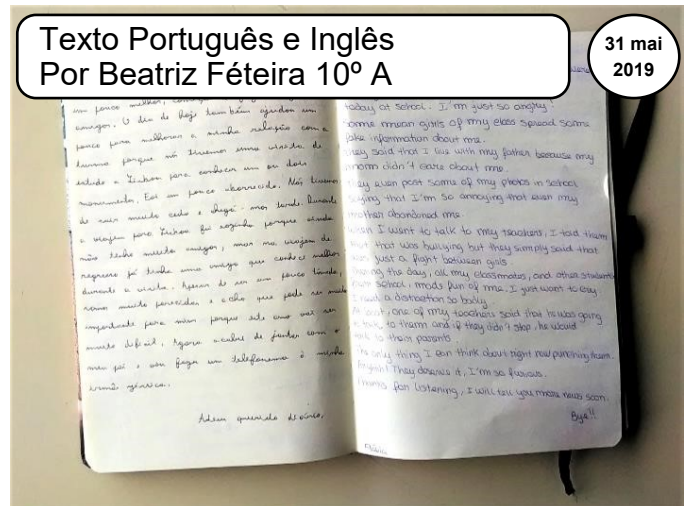 Texto Português e Inglês
Por Beatriz Féteira 10º A
31 mai
2019
um pouco melhor,
amigos. O dia de hoje também ajudou um
pouco para melhorar a minha relação com a
turma porque nós tivemos uma visita de
estudo a Lisboa para conhecer um ou dois
monumentos. Foi um pouco aborrecido. Nós tivemos
de sair muito cedo e mos tarde. Durante
a viagem para Lisboa fui sozinha porque ainda
não tenho muitos amigos, mas na viagem de
regresso já tenho uma amiga que conheci melhor
durante a visita. Apesar de ser um pouco tímida,
somos muito parecidas e acho que pode ser muito
importante para mim porque este ano vai ser
muito difícil. Agora acabei de jantar com o
meu pai e vou fazer um telefonema à minha
irmã
Adeus querido diário,
today at school. I'm just so angry!
Some mean girls of my class spread some
fake information about me.
They said that I live with my father because my
mom didn't care about me.
They even post some of my photos in school
saying that I'm so annoying that even my
mother abandoned me.
When I want to talk to my teachers, I told them
that that was bullying but they simply said that
was just a fight between girls.
During the day, all my classmates, and other students
school, made fun of me. I just want to cry.
I need a distraction so badly.
At least, one of my teachers said that he was going
to talk to them and if they didn't stop, he would
talk to their parents.
The only thing I can think about right now punching them.
They deserve it, I'm so furious.
Thanks for listening, I will tell you more news soon.
Bye!!